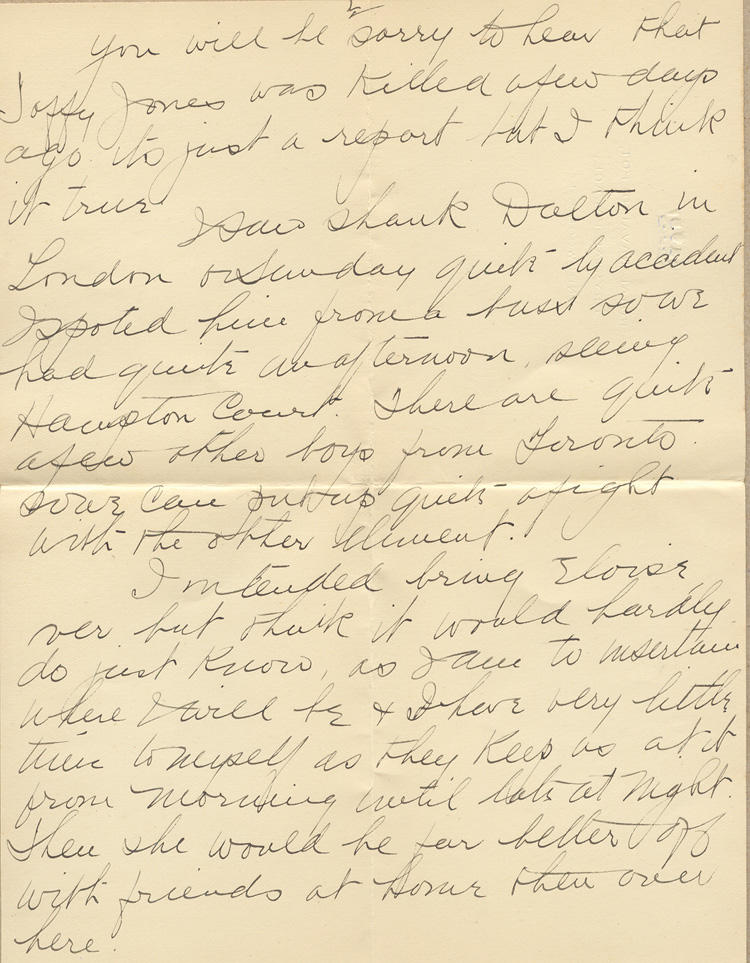 You will be sorry to hear that
Taffy Jones was Killed a few days
ago its just a report but I think
it true
I saw Shank Dalton in
London on Sunday quite by accident
I spoted him from a buss so we
had quite an afternoon, seeing
Hampton Court. There are quite
a few other boys from Toronto.
so we can put up quite a fight
with the other element.
I intended bring Eloise
over but think it would hardly
do just Know, as I am to unsertain
where I will be & I have very little
time to myself as they Keep us at it
from morning until late at night.
Then she would be far better off
with friends at home then over
here.